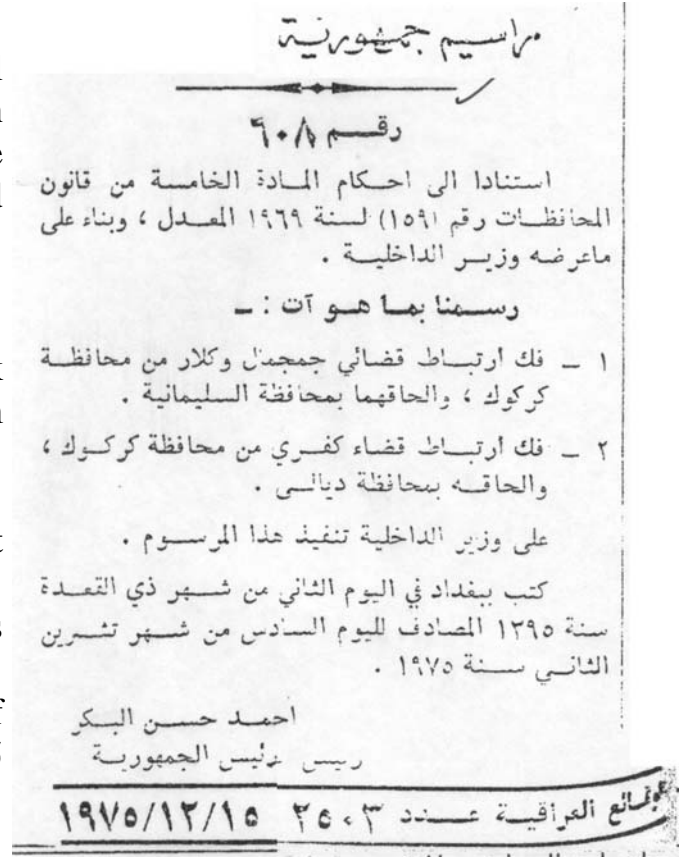 مراسيم جمهورية
رقـــم ٦٠٨
استنادا الى احــكام المــادة الخامســة من قانون
المحافظــات رقم (١٥٩) لســنة ١٩٦٩ المعــدل ، وبناء على
ماعرضه وزيــر الداخليــة .
رســمنا بمــا هــو آت : ــ
١ ــ فك ارتبــاط قضائي جمجمال وكلار من محافظــة
كركوك ، والحاقهما بمحافظة السليمانية .
٢ ــ فك ارتبــاط قضاء كفــري من محافظة كركــوك ،
والحاقــه بمحافظة ديالــى .
على وزير الداخلية تنفيذ هذا المرســوم .
كتب ببغداد في اليوم الثاني من شــهر ذي القعــدة
سنة ١٣٩٥ المصادف لليوم السادس من شــهر تشــرين
الثانــي ســنة ١٩٧٥ .
احمــد حســن البــكر
رئيس الجمهوريــة
الوقائع العراقيــة عــدد ٢٥٠٣ ١٩٧٥/١٢/١٥